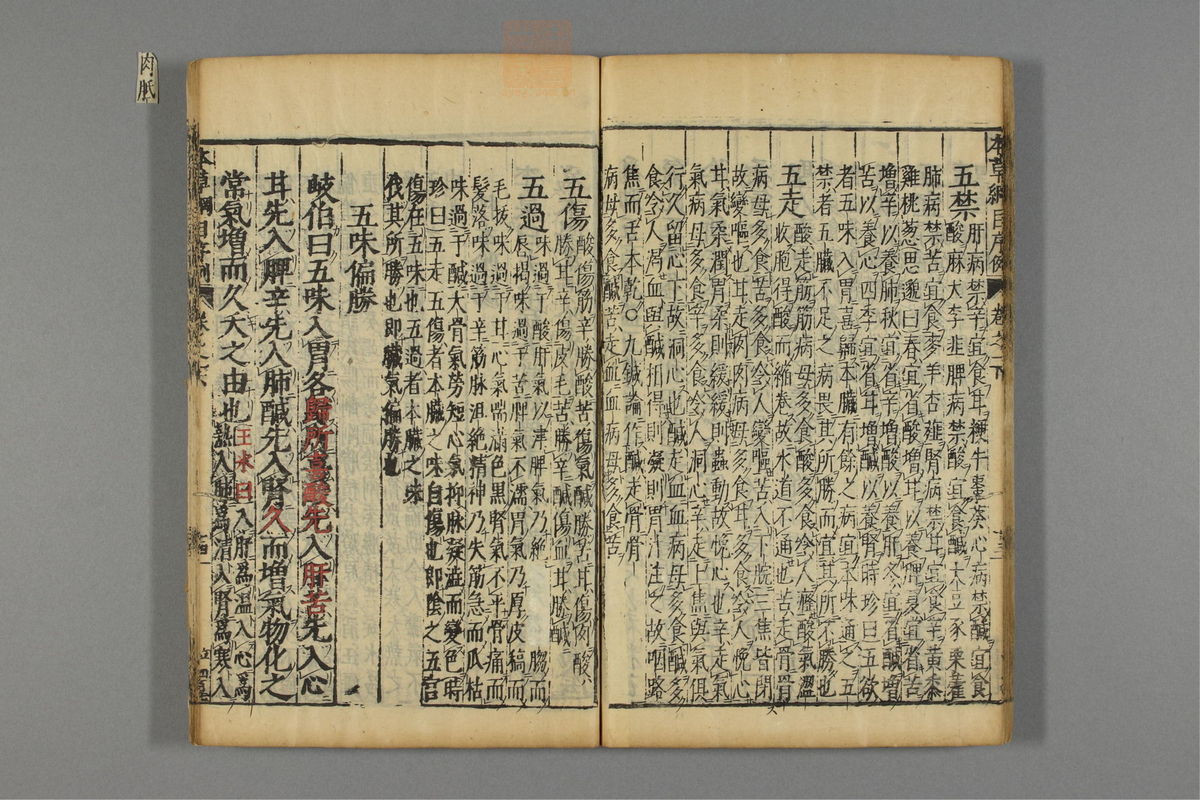 本草綱目序例 卷之一下
五禁 肝病禁辛宜食甘粳牛棗葵心病禁鹹宜食
酸麻犬李韭脾病禁酸宜食鹹大豆豕栗藿
肺病禁苦宜食麥羊杏薤腎病禁甘宜食辛黃黍
雞桃葱思邈曰春宜省酸增甘以養脾夏宜省苦
增辛以養肺秋宜省辛增酸以養肝冬宜省鹹增
苦以養心四季宜省甘增鹹以養腎時珍曰五欲
者五味入胃喜歸本臟有餘之病宜本味通之五
禁者五臟不足之病畏其所勝而宜其所不勝也
五走 酸走筋筋病毋多食酸多食令人癃酸氣澀
收胞得酸而縮卷故水道不通也苦走骨骨
病毋多食苦多食令人變嘔苦入下脘三焦皆閉
故變嘔也甘走肉肉病毋多食甘多食令人悗心
甘氣柔潤胃柔則緩緩則蟲動故悗心也辛走氣
氣病毋多食辛多食令人洞心辛走上焦與氣俱
行久留心下故洞心也鹹走血血病毋多食鹹多
食令人渴血與鹹相得則凝凝則胃汁注之故咽路
焦而舌本乾〇九鍼論作鹹走骨骨
病毋多食鹹苦走血血病毋多食苦
五傷 酸傷筋辛勝酸苦傷氣鹹勝苦甘傷肉酸
勝甘辛傷皮毛苦勝辛鹹傷血甘勝鹹
五過 味過于酸肝氣以津脾氣乃絕肉胝䐢而
唇揭味過于苦脾氣不濡胃氣乃厚皮稿而
毛拔味過于甘心氣喘滿色黑腎氣不平骨痛而
髮落味過于辛筋脉沮絕精神乃失筋急而爪枯
味過于鹹大骨氣勞短心氣抑脉凝澁而變色時
珍曰五走五傷者本臟之味自傷也即陰之五宮
傷在五味也五過者本臟之味
伐其所勝也即臟氣偏勝也
五味偏勝
岐伯曰五味入胃各歸所喜酸先入肝苦先入心
甘先入脾辛先入肺鹹先入腎久而增氣物化之
常氣增而久夭之由也王氷曰入肝爲溫入心爲
熱入肺爲清入腎爲寒入
本草綱目序例
肉胝